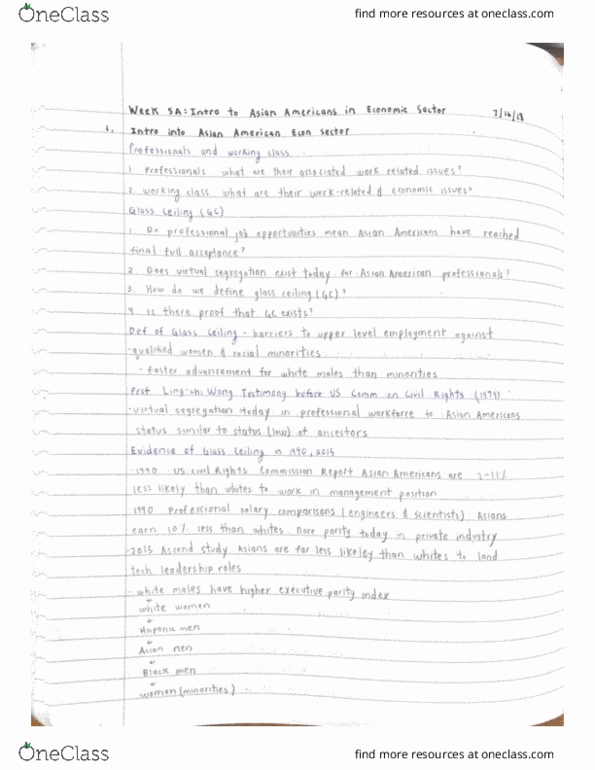 OneClass
find more resources at oneclass.com
Week 5A: Intro to Asian Americans in Economic Sector
1. Intro into Asian American Econ Sector
Professionals and working class
1. Professionals what are their associated work related issues?
2. working class what are their work-related & economic issues?
Glass Ceiling (GC)
1. Do professional job opportunities mean Asian Americans have reached
final full acceptance?
2. Does virtual segregation exist today for Asian American professionals?
3. How do we define glass ceiling (GC)?
4. is there proof that GC exists?
Def of Glass Ceiling · barriers to upper level employment against
·qualified women & racial minorities
- faster advancement for white males than minorities
Prof Ling-chi Wang Testimony before US Comm on Civil Rights (1979)
·virtual segregation today in professional workforce to Asian Americans
status similar to status (low) of ancestors
Evidence of Glass Ceiling in 1990, 2015
·1990 US Civil Rights Commission Report Asian Americans are 7-11%
less likely than whites to work in management position
·1990 Professional salary comparisons (engineers & scientists) Asians
earn 10% less than whites more parity today in private industry
·2015 Ascend study Asians are far less likeley than whites to land
tech leadership roles
· white males have higher executive parity index
white women
Hispanic men
Asian men
Black men
women (minorities)
OneClass
find more resources at oneclass.com